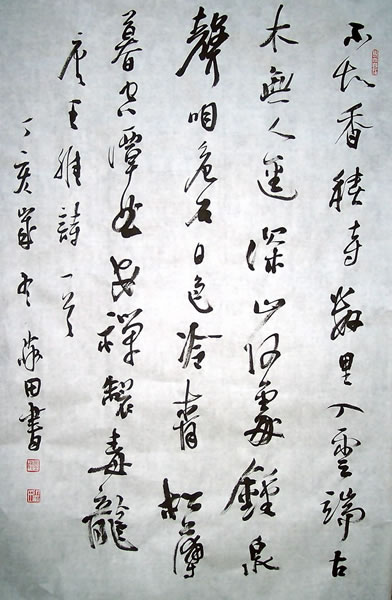 不知香積寺數里入雲端古
木無人逕深山何處鍾泉
聲咽危石日色冷青松薄
暮空潭曲安禪製毒龍
唐王維詩一首
丁亥歲冬田書